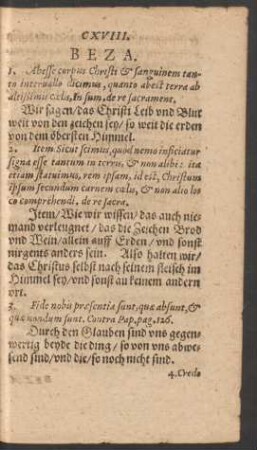 CXVIII.
BEZA.
1. Abesse corpus Christi & sanguinem tan-
to intervallo dicimus, quanto abest terra ab
altissimis cœlis, In sum. de re sacrament.
Wir sagen/ das Christi Leib vnd Blut
weit von den zeichen sey/ so weit die erden
von dem öbersten Himmel.
2. Item, Sicut scimus, quod nemo inficiatur
signa esse tantum in terris, & non alibi: ita
etiam statuimus, rem ipsam, id est, Christum
ipsum secundum carnem cœlis, & non alio lo
co comprehendi. de re sacra.
Item/ Wie wir wissen/ das auch nie-
mand verleugnet/ das die Zeichen Brod
vnd Wein/ allein auff Erden/ vnd sonst
nirgents anders sein. Also halten wir/
das Christus selbst nach seinem fleisch im
Himmel sey/ vnd sonst an keinem andern
ort.
3. Fide nobis præsentia sunt, quæ absunt, &
quæ nondum sunt. Contra Pap. pag. 126.
Durch den Glauben sind vns gegen-
wertig beyde die ding/ so von vns abwe-
send sind/ vnd die/ so noch nicht sind.
4. Credo